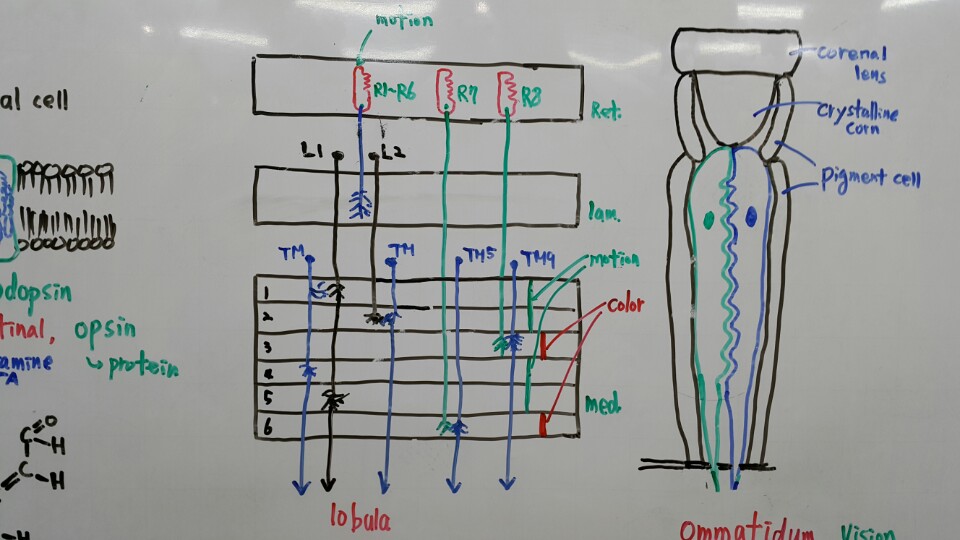 al cell
dopsin
tinal, opsin
amine
↳ protein
C=O
C-H
C-H
-H
motion
R1~R6
R7
R8
Ret.
L1
L2
lam.
TM
TM
TM5
TM9
motion
color
1
2
3
4
5
6
Med.
lobula
corenal
lens
crystalline
corn
pigment cell
Ommatidum
Vision